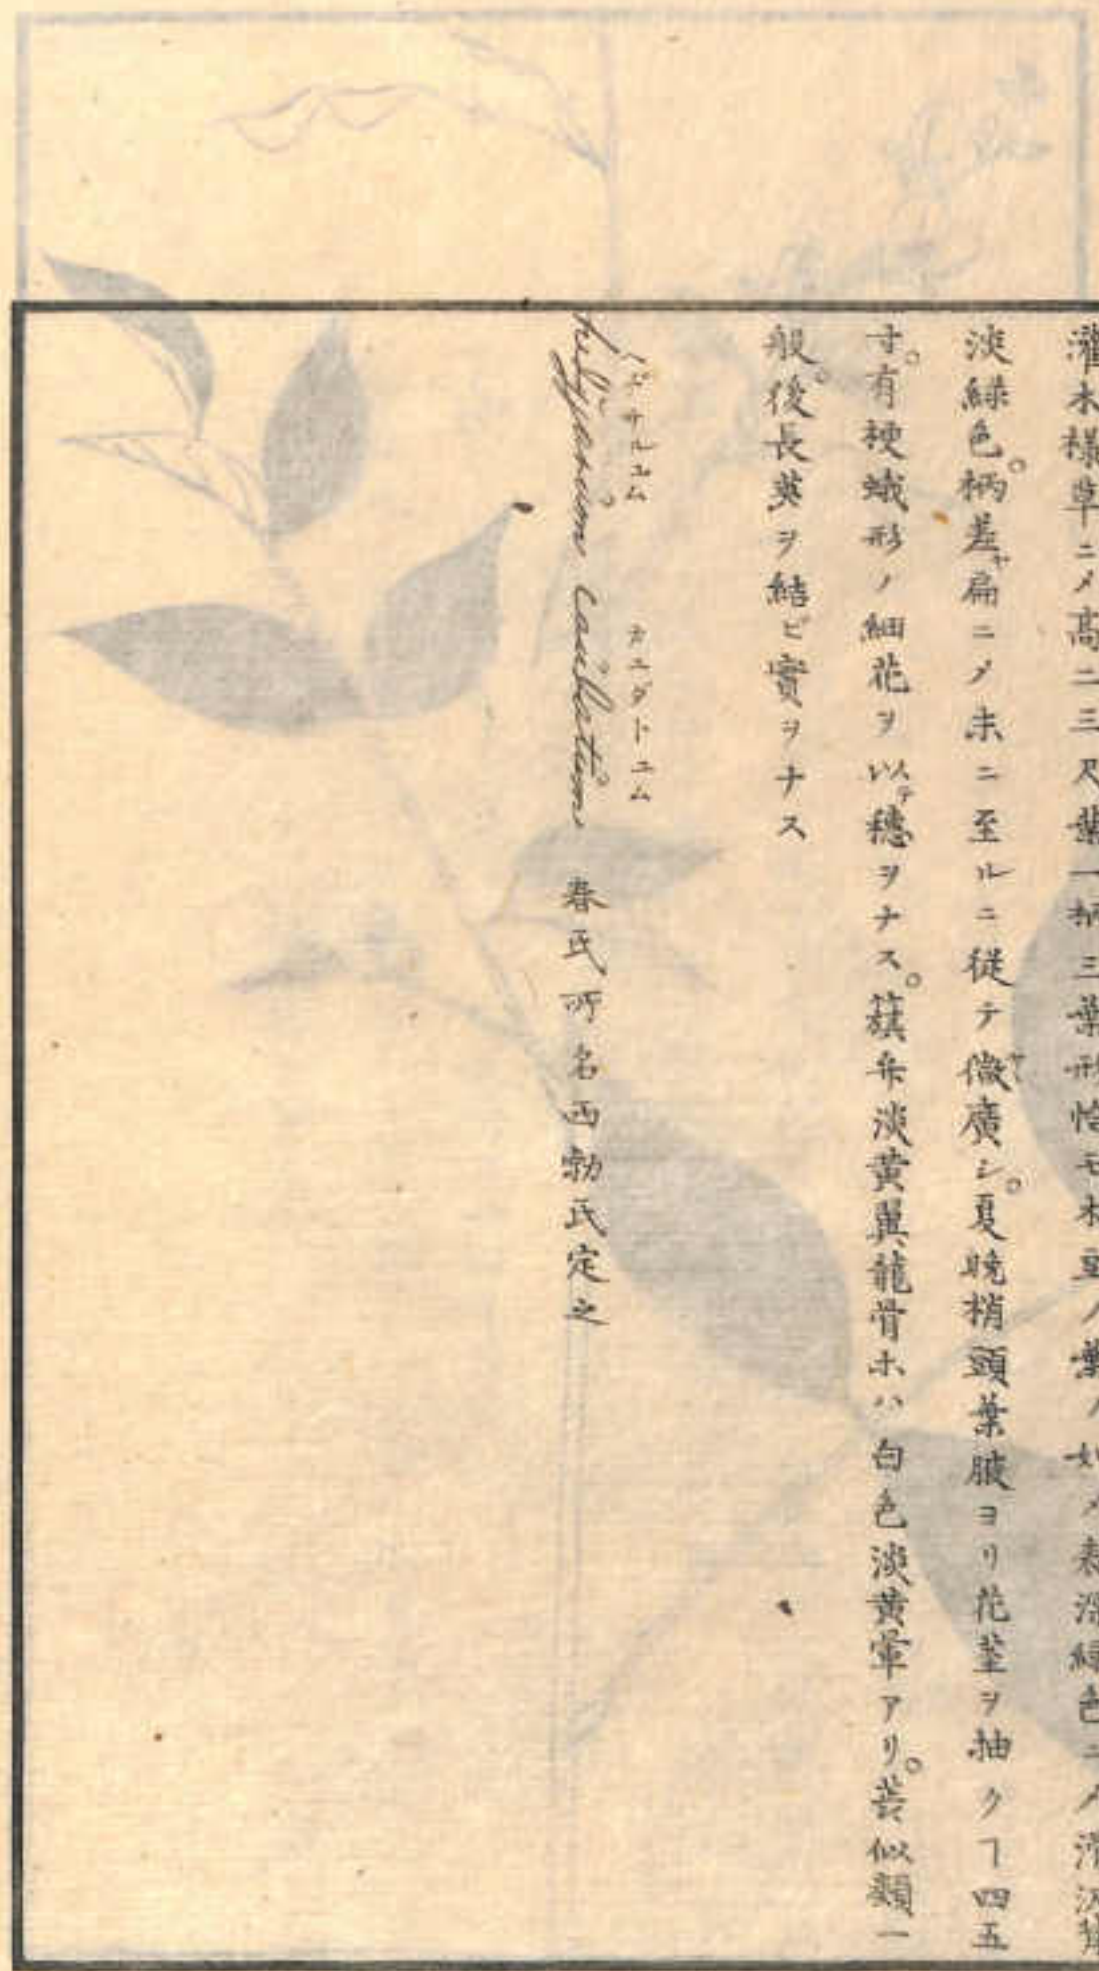 灌木様草ニ〆高二三尺葉一柄三葉形恰モ木豆ノ葉ノ如〆表深緑色ニ〆滑沢
淡緑色。柄差ヤ扁ニ〆末ニ至ルニ従テ微廣シ。夏晩梢頭葉腋ヨリ花莖ヲ抽クヿ四五
寸。有梗蛾形ノ細花ヲ以テ穂ヲナス。旗弁淡黄翼龍骨ホハ白色淡黄暈アリ。萼似類一
般。後長莢ヲ結ビ實ヲナス
ヘヂサルユム カユダトユム
hedijsarum caudatum 春氏所名西勃氏定之